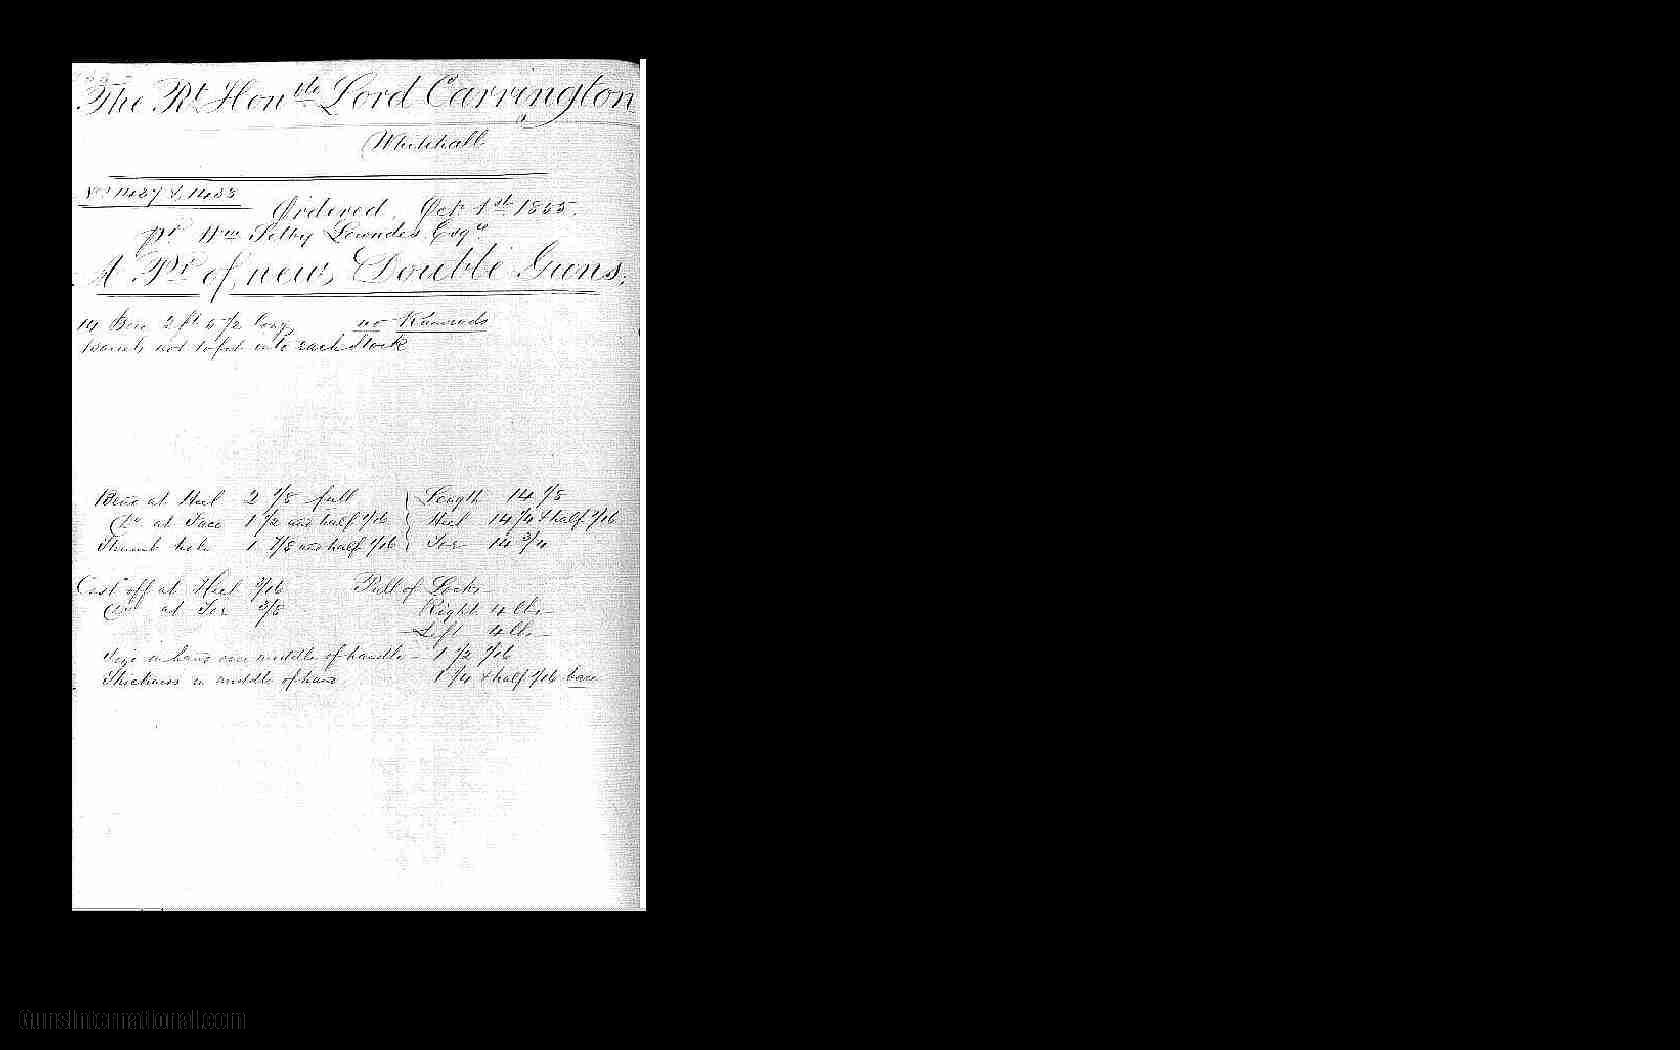 The Rt Honble Lord Carrington
Whitehall
Nos 11437 & 11438
Ordered Oct 1st 1855.
pr Wm Selby Lowndes Esqre
A Pr of new Double Guns,
14 Bore 2 ft 6 1/2 long no Ramrods
Barrels not to fit into each Stock
Bend at Heel 2 1/8 full Length 14 1/8
Do. at Face 1 1/2 and half 1/16 Heel 14 1/4 & half 1/16
Thumb hole 1 7/8 and half 1/16 Toe 14 3/4
Cast off at Heel 3/16 Pull of Locks
Do at Toe 3/8 Right 4 lbs
Left 4 lbs
Size in hand over middle of handle 1 1/2 1/16
Thickness in middle of hand 1 1/4 & half 1/16 bare
GunsInternational.com